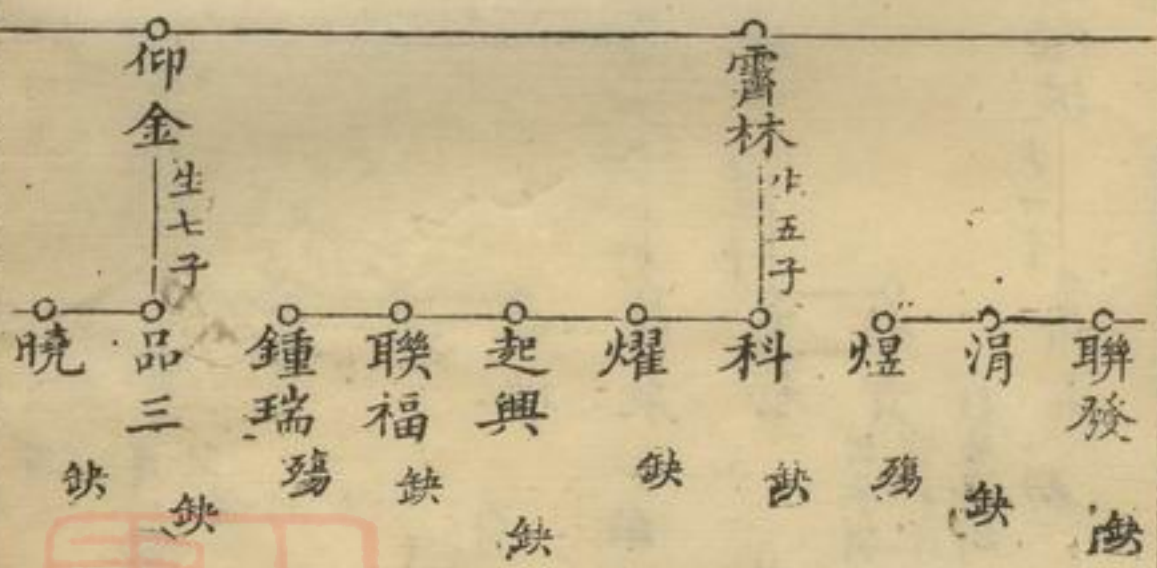 霽林
生五子
仰金
生七子
聯發
缺
涓
缺
煜
殤
科
缺
燿
缺
起興
缺
聯福
缺
鍾瑞
殤
品三
缺
曉
缺